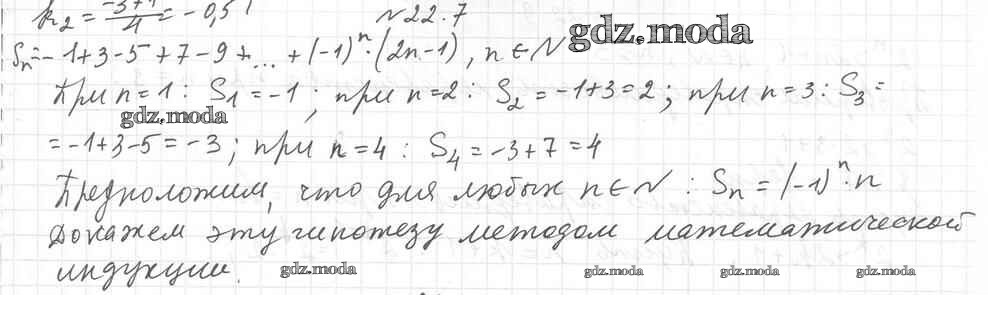 k₂ = -3+1/4 = -0,5 №22.7
gdz.moda
Sₙ = -1+3-5+7-9+...+(-1)ⁿ·(2n-1), n∈N
При n=1: S₁=-1; при n=2: S₂=-1+3=2; при n=3: S₃=
gdz.moda
=-1+3-5=-3; при n=4: S₄=-3+7=4
Предположим, что для любых n∈N: Sₙ=(-1)ⁿ·n
Докажем эту гипотезу методом математической
индукции.
gdz.moda gdz.moda gdz.moda gdz.moda